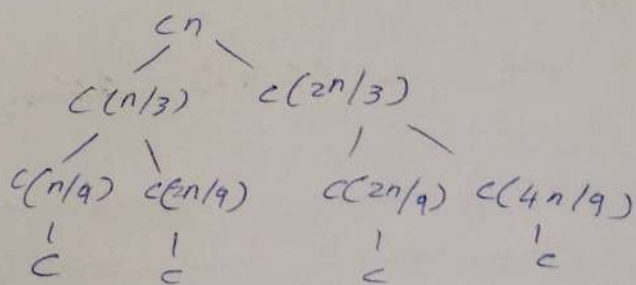 cn
C(n/3) c(2n/3)
C(n/9) C(2n/9) C(2n/9) C(4n/9)
C C C C